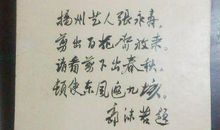 扬州艺人张永寿，
剪出百花齐放来。
请看剪下出春秋，
顿使东风遍九垓。
郭沫若题